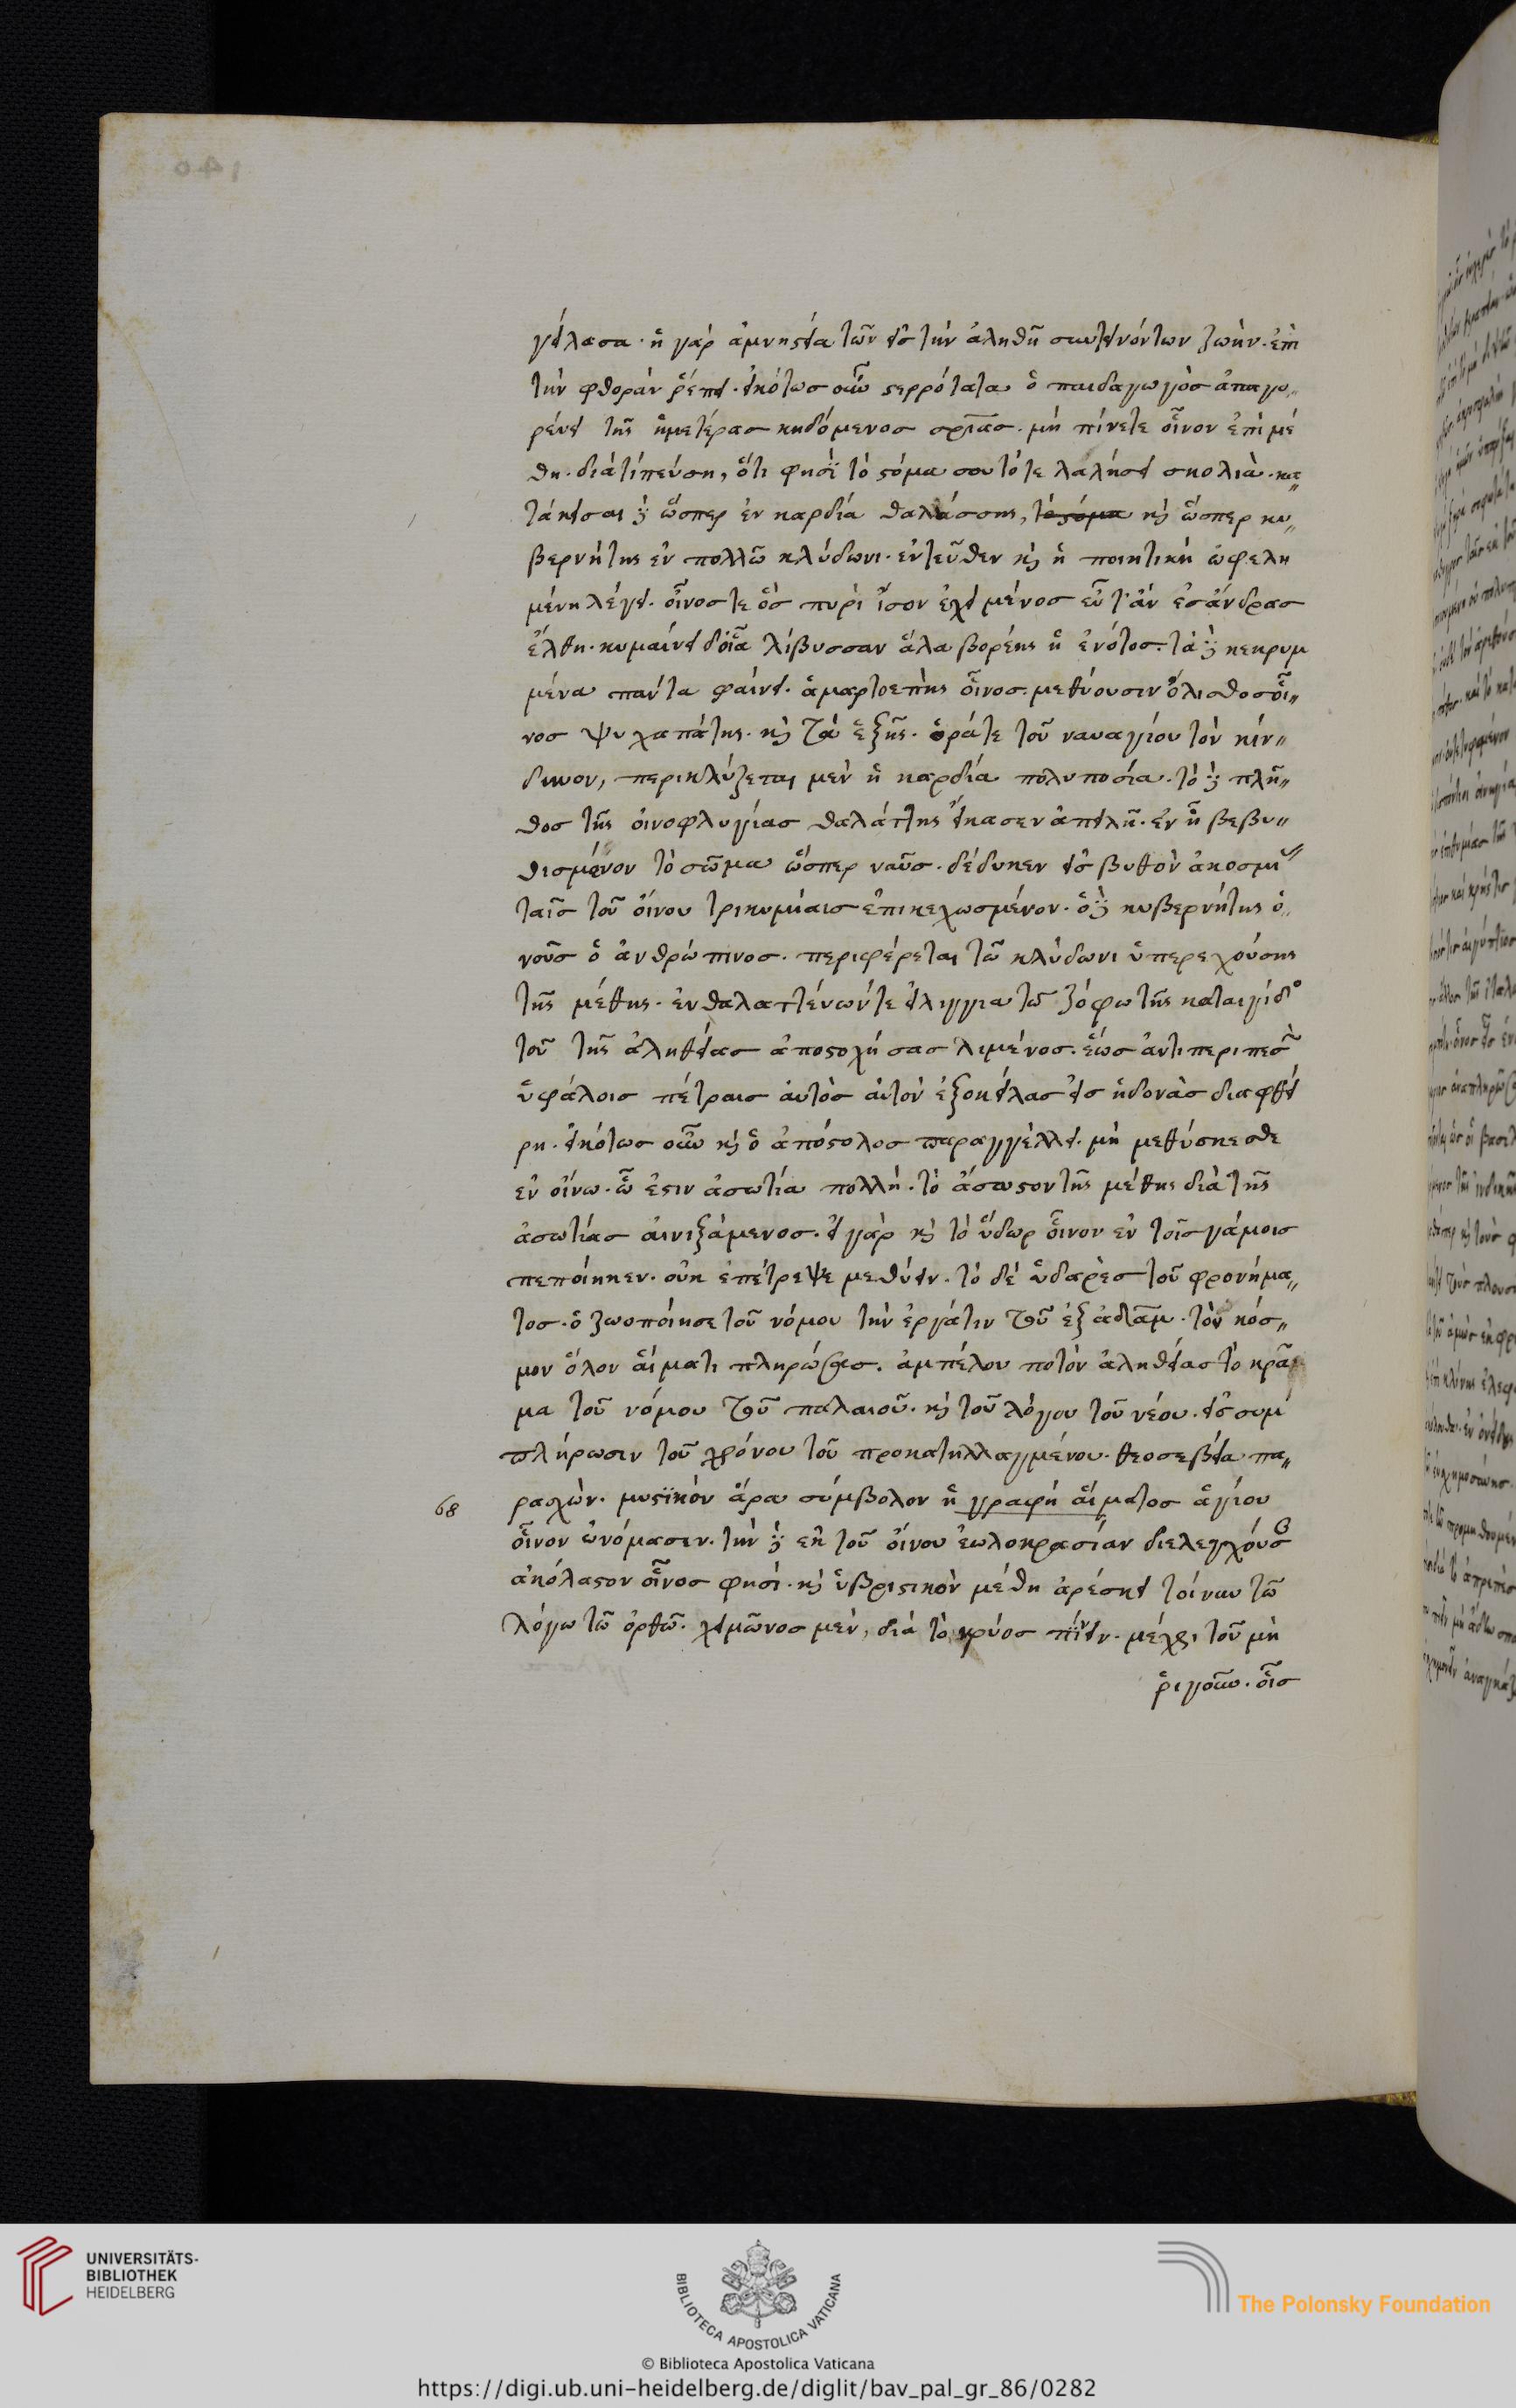 140
γείλασα· ἡ γὰρ ἀμνηστία τῶν εἰς τὴν ἀληθῆ συντεινόντων ζωὴν. ἐπὶ
τὴν φθορὰν ῥέπει. εἰκότωσ οὖν στερρότατα ὁ παιδαγωγὸσ ἀπαγο〃
ρεύει τῆς ἡμετέρασ κηδόμενοσ σρίασ. μὴ πίνετε οἶνον ἐπὶ μέ
θη. διὰ τί πεύση, ὅτι φησὶ τὸ στόμα σου τότε λαλήσει σκολιὰ. κα〃
τάκεισαι δὲ ὥσπερ ἐν καρδία θαλάσσης, τὸ στόμα καὶ ὥσπερ κυ〃
βερνήτης ἐν πολλῶ κλύδωνι. ἐντεῦθεν καὶ ἡ ποιητικὴ ὠφελη
μένη λέγει. οἶνοσ τε ὃσ πυρὶ ἴσον ἔχει μένοσ εὖτ' ἂν ἐσ ἄνδρασ
ἔλθη. κυμαίνει δ'οἷα λίβυσσαν ἅλα βορέης ἢ ἐνότοσ. τὰ δὲ κεκρυμ
μένα πάντα φαίνει. ἁμαρτοεπὴς οἶνοσ. μεθύουσιν ὄλισθοσ οἶ〃
νοσ ψυχαπάτης. καὶ τὰ ἑξῆς. ὁρᾶτε τοῦ ναυαγίου τὸν κίν〃
δυνον, περικλύζεται μὲν ἡ καρδία πολυποσία. τὸ δὲ πλῆ〃
θοσ τῆς οἰνοφλυγίασ θαλάττης εἴκασεν ἀπειλῆ. ἐν ἧ βεβυ〃
θισμένον τὸ σῶμα ὥσπερ ναῦσ. δέδυκεν εἰς βυθὸν ἀκοσμί〃
ταῖσ τοῦ οἴνου τρικυμίαισ ἐπικεχωσμένον. ὁ δὲ κυβερνήτης ὁ〃
νοῦσ ὁ ἀνθρώπινοσ. περιφέρεται τῶ κλύδωνι ὑπερεχούσης
τῆς μέθης. ἐν θαλαττέυων τε εἰλιγγια τῶ ζόφω τῆς καταιγίδο
τοῦ τῆς ἀληθείασ ἀποστοχήσασ λιμένοσ. ἕωσ ἀντιπεριπεσ
ὑφάλοισ πέτραισ αὐτὸσ αὑτὸν ἐξοκείλασ εἰσ ἡδονὰσ διαφθεί
ρη. εἰκότωσ οὖν καὶ ὁ ἀπόστολοσ παραγγέλλει. μὴ μεθύσκεσθε
ἐν οἴνω. ὧ ἐστιν ἀσωτία πολλή. τὸ ἄσωστον τῆς μέθης διὰ τῆς
ἀσωτίασ αἰνιξάμενοσ. εἰ γὰρ καὶ τὸ ὕδωρ οἶνον ἐν τοῖσ γάμοισ
πεποίηκεν. οὐκ ἐπέτρεψε μεθύειν. τὸ δὲ ὑδαρὲσ τοῦ φρονήμα〃
τοσ. ὁ ζωοποίησε τοῦ νόμου τὴν ἐργάτιν τοῦ ἐξ ἀδὰμ. τὸν κόσ〃
μον ὅλον αἵματι πληρώσασ. ἀμπέλου ποτὸν ἀληθείασ τὸ κρᾶ
μα τοῦ νόμου τοῦ παλαιοῦ. καὶ τοῦ λόγου τοῦ νέου. εἰς συμ
πλήρωσιν τοῦ χρόνου τοῦ προκατηλλαγμένου. θεοσεβεία πα〃
68 ρασχὼν. μυστικὸν ἄρα σύμβολον ἡ γραφὴ αἵματοσ ἁγίου
οἶνον ὠνόμασεν. τὴν δὲ ἐκ τοῦ οἴνου ἑωλοκρασίαν διελεγχούσ
ἀκόλαστον οἶνοσ φησὶ. καὶ ὑβριστικὸν μέθη ἀρέσκει τοίνυν τῶ
λόγω τῶ ὀρθῶ. χειμῶνοσ μὲν, διὰ τὸ κρύοσ πίνειν. μέχρι τοῦ μὴ
ῥιγοῦν. οἷσ
UNIVERSITÄTS-
BIBLIOTHEK
HEIDELBERG
BIBLIOTECA APOSTOLICA VATICANA
The Polonsky Foundation
© Biblioteca Apostolica Vaticana
https://digi.ub.uni-heidelberg.de/diglit/bav_pal_gr_86/0282